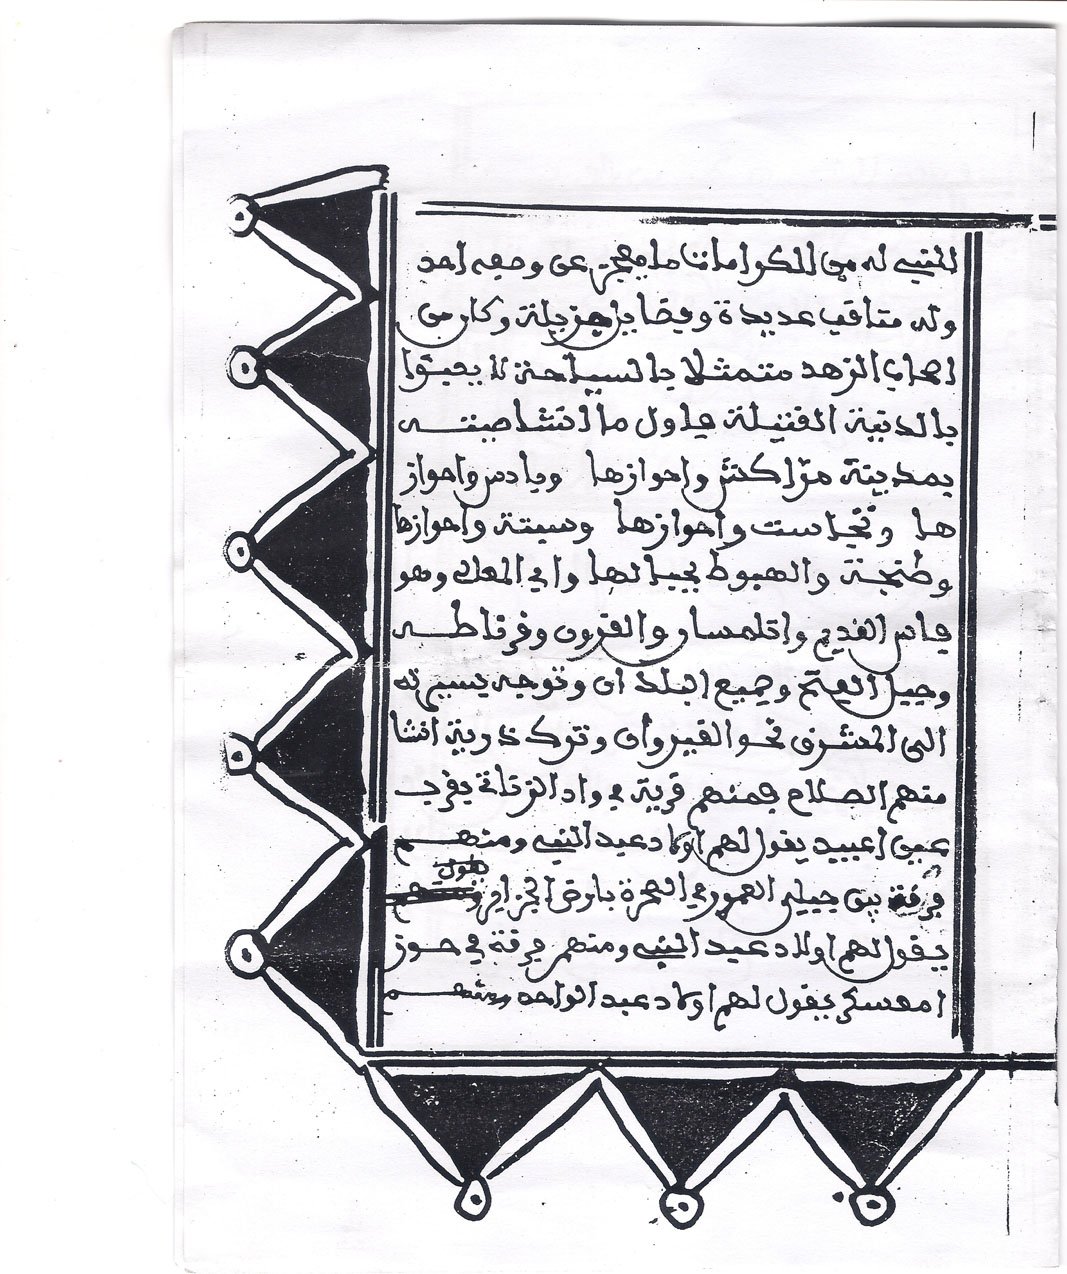 النبي له من الكرامات ما يعجز عن وصفه احد
وله مناقب عديدة وفضايل جزيلة وكان من
اصحاب الزهد متمثلا بالسياحة لا يعبؤا
بالدنية القليلة فاول ما انتشا صيته
بمدينة مراكش واحوازها وبادس واحواز
ها واحوازها وسبتة واحوازها
وطنجة والهبوط بجبالها وهو
فاس القديم واتلمسان والقزوان وغرناطه
وجبل الفتح وجميع البلدان وتوجه يسير له
الى المشرق نحو القيروان وترك ذرية افشا
منهم الصلاح فمنهم قرية في واد الزناتي بقرب
عين اعبيد يقول لهم اولاد عبد النبي ومنهم
فرقة بين جبلي العمور في الصحرة بارض الجزاير
يقول لهم اولاد عبد النبي ومنهم فرقة في حوز
امعسكر يقول لهم اولاد عبد الواحد ومنهم